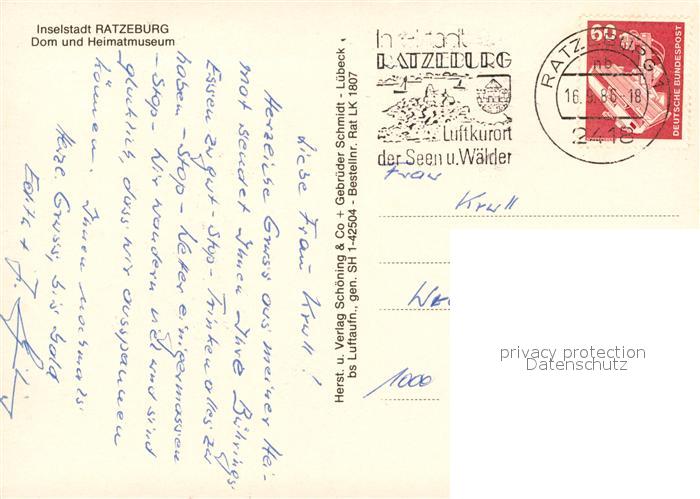 Inselstadt RATZEBURG
Dom und Heimatmuseum
Liebe Frau Krull!
Herzliche Grüsse aus meiner Hei-
mat sendet Ihnen Ihre Bührings.
Essen zu gut - Stop - Trinken alles zu
haben - Stop - Wetter einigermassen
- Stop - Wir wandern viel und sind
glücklich, dass wir ausspannen
können. Ihnen nochmals
Herzl. Gruss, bis bald
Edith +
Herst. u. Verlag Schöning & Co + Gebrüder Schmidt - Lübeck
bs Luftaufn., gen. SH 1-42504 - Bestellnr. Rat LK 1807
Inselstadt
RATZEBURG
Luftkurort
der Seen u. Wälder
RATZEBURG 1
16.5.86-18
2418
60
DEUTSCHE BUNDESPOST
Frau
Krull
1000
privacy protection
Datenschutz